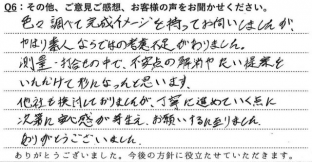 Q6：その他、ご意見ご感想、お客様の声をお聞かせください。
色々調べて完成イメージを持ってお伺いしましたが、
やはり素人ならではの考慮不足がありました。
測量・打合せの中で、不安点の解消や良い提案を
いただけて形になったと思います。
他社も検討しておりましたが、丁寧に進めていく点に
次第に安心感が芽生え、お願いするに至りました。
ありがとうございました。
ありがとうございました。今後の方針に役立たせていただきます。